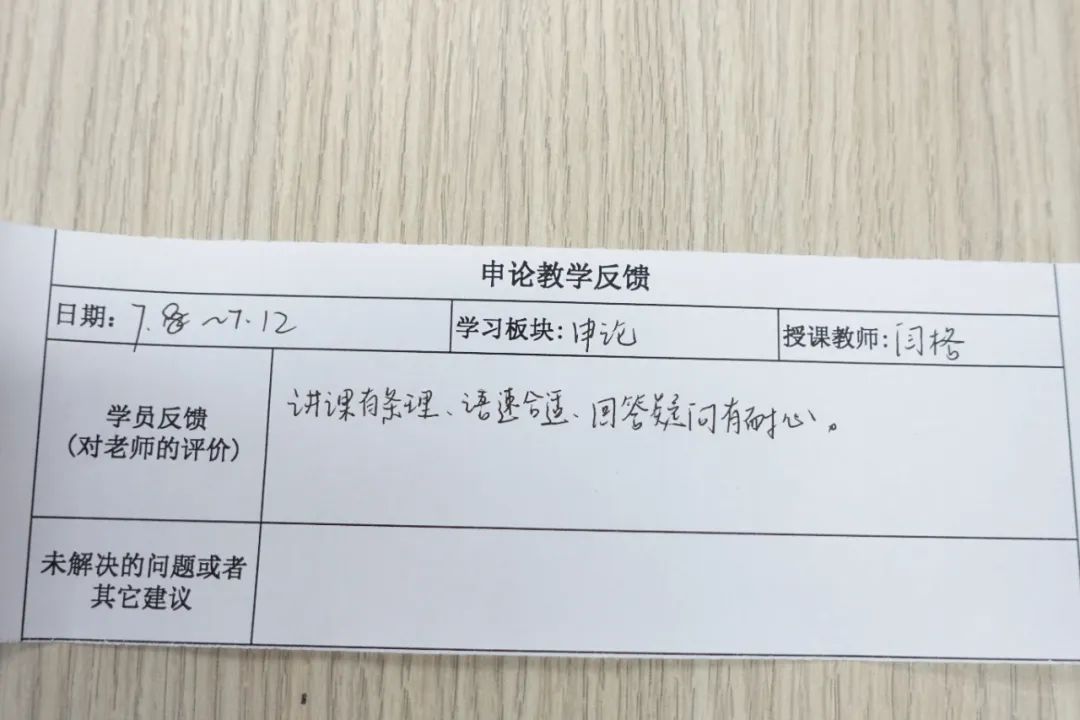 申论教学反馈
日期：7.8～7.12 学习板块：申论 授课教师：闫格
学员反馈
（对老师的评价）
讲课有条理、语速合适、回答疑问有耐心。
未解决的问题或者
其它建议